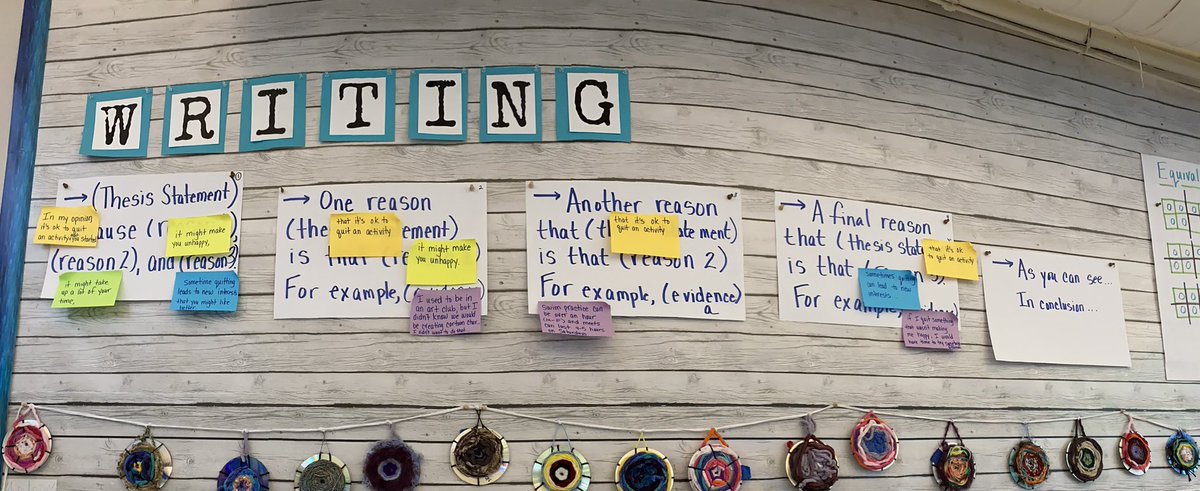 WRITING
→ (Thesis Statement) ①
In my opinion,
it's ok to quit
an activity you started
ause (r
it might make
you unhappy,
(reason 2), and (reason 3)
it might take
up a lot of your
time,
Sometimes quitting
leads to new interest
that you might like
2
→ One reason
(the ement)
that it's ok to
quit an activity
is that (re
it might make
you unhappy.
For example, (
I used to be in
an art club, but I
didn't know we would
be creating cartoon char.
I didn't want to do that.
→ Another reason
that (th tement)
that it's ok to
quit an activity
is that (reason 2)
For example, (evidence)
a
Swim practice can
be over an hour
and meets
can last 4-5 hours
on Saturdays
→ A final reason
that (thesis stat
that it's ok
to quit an activity
is that (
Sometimes quitting
can lead to new
interests
For exam
if I quit something
that wasn't making
me happy, I would
have time to try
→ As you can see...
In conclusion...
Equival